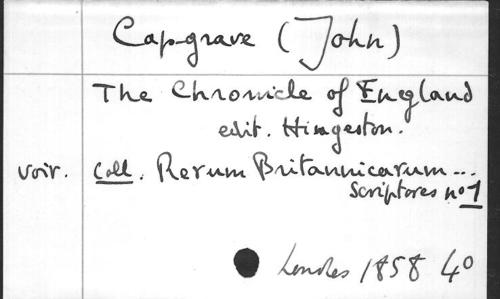 Capgrave (John)
The Chronicle of England
edit. Hingeston.
voir. Coll. Rerum Britannicarum ...
Scriptores no 1
Londres 1858 4o